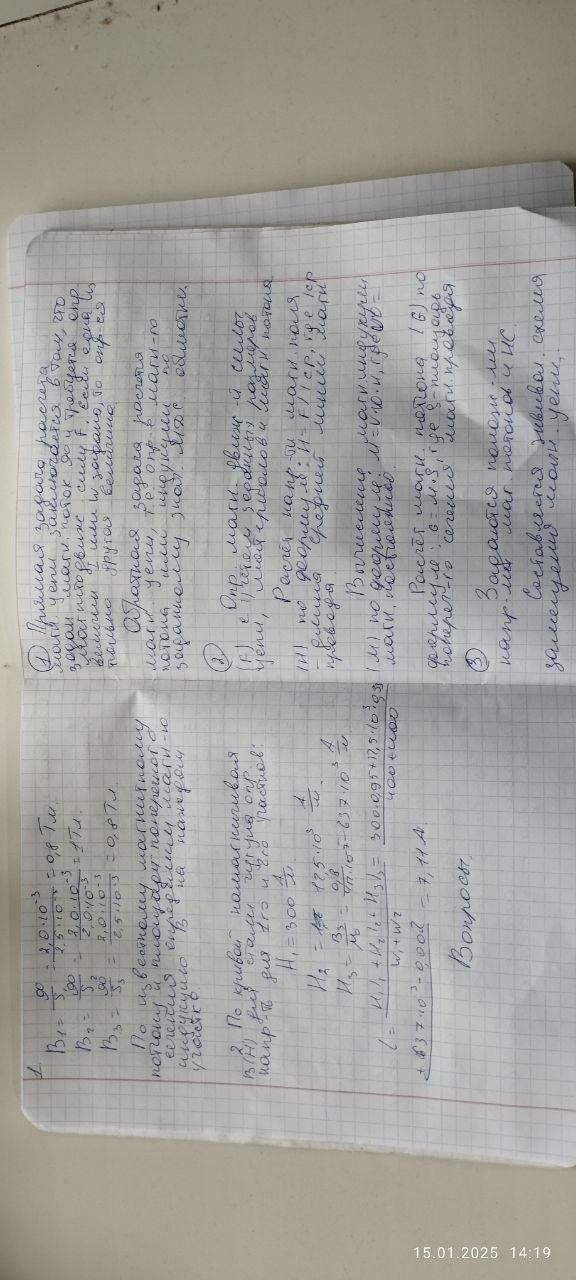 1.
B₁ = φ/S₁ = 2,0·10⁻³/2,5·10⁻³ = 0,8 Тл.
B₂ = φ/S₂ = 2,0·10⁻³/2,0·10⁻³ = 1 Тл.
B₃ = φ/S₃ = 2,0·10⁻³/2,5·10⁻³ = 0,8 Тл.
По известному магнитному
потоку и площади поперечного
сечения определяем магн-ю
индукцию B на каждом
участке.
2. По кривой намагничивания
B(H) для стали и чугуна опр
напр-ть для 1го и 2го участков:
H₁ = 300 А/м
H₂ = 12,5·10³ А/м
H₃ = B₃/μ₀ = 0,8/4π·10⁻⁷ = 637·10³ А/м
I = H₁l₁+H₂l₂+H₃l₃ / w₁+w₂ = 300·0,95+12,5·10³·0,95
+ 637·10³·0,002 / 400+1100 = 7,11 А
Вопросы
① Прямая задача расчета
магн. цепи заключается в том, что
задан магн. поток и требуется опр
магнитодвиж силу F. Если одна из
величин или w задано, то опр-ся
только другая величина
Обратная задача расчета
магн цепи, опр-е магн-го
потока или индукции по
заданному знач. МДС обмотки.
② Опр. магн. движ-й силы
(F) с учетом заданных размеров
цепи, материалов и магн потока
Расчет напр-ти магн. поля
(H) по формуле: H = F/lср, где lср
- длина средней линии магн
провода.
Вычисление магн индукции
(M) по формуле:
магн. постоянной.
Расчет магн. потока (G) по
формуле: G = M·S, где S - площадь
поперечн-го сечения магн. провода
③ Задаются положи-ми
напр-ми маг потоков и НС.
Составляется эквивал. схема
замещения магн. цепи.
15.01.2025 14:19